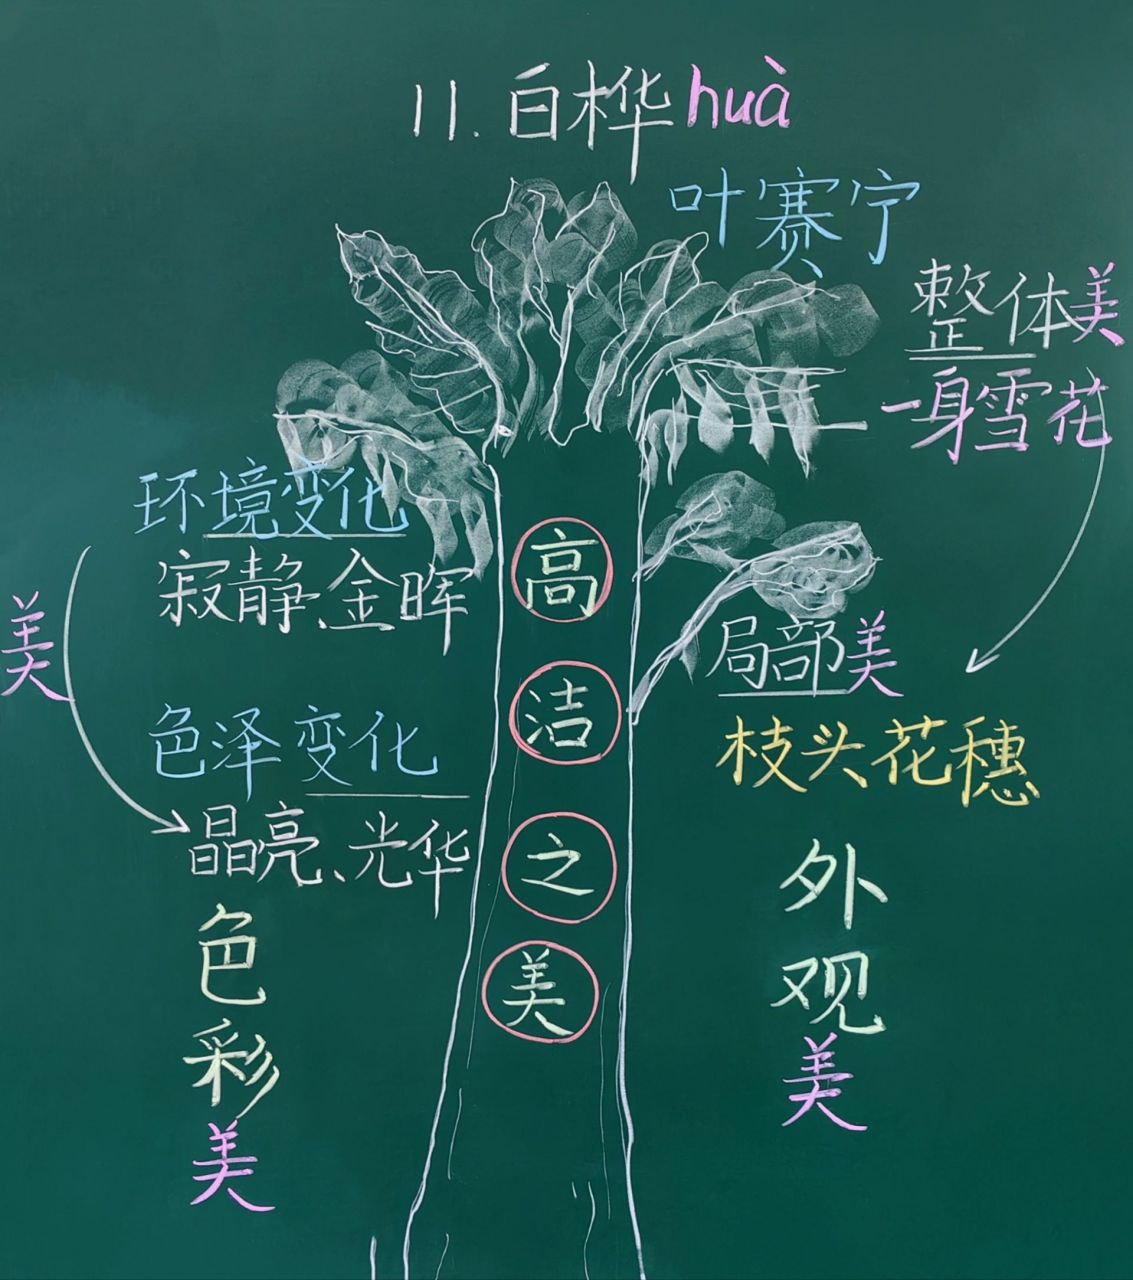 11.白桦huà
叶赛宁
整体美
一身雪花
环境变化
寂静、金晖
美
色泽变化
晶亮、光华
色彩美
高洁之美
局部美
枝头花穗
外观美